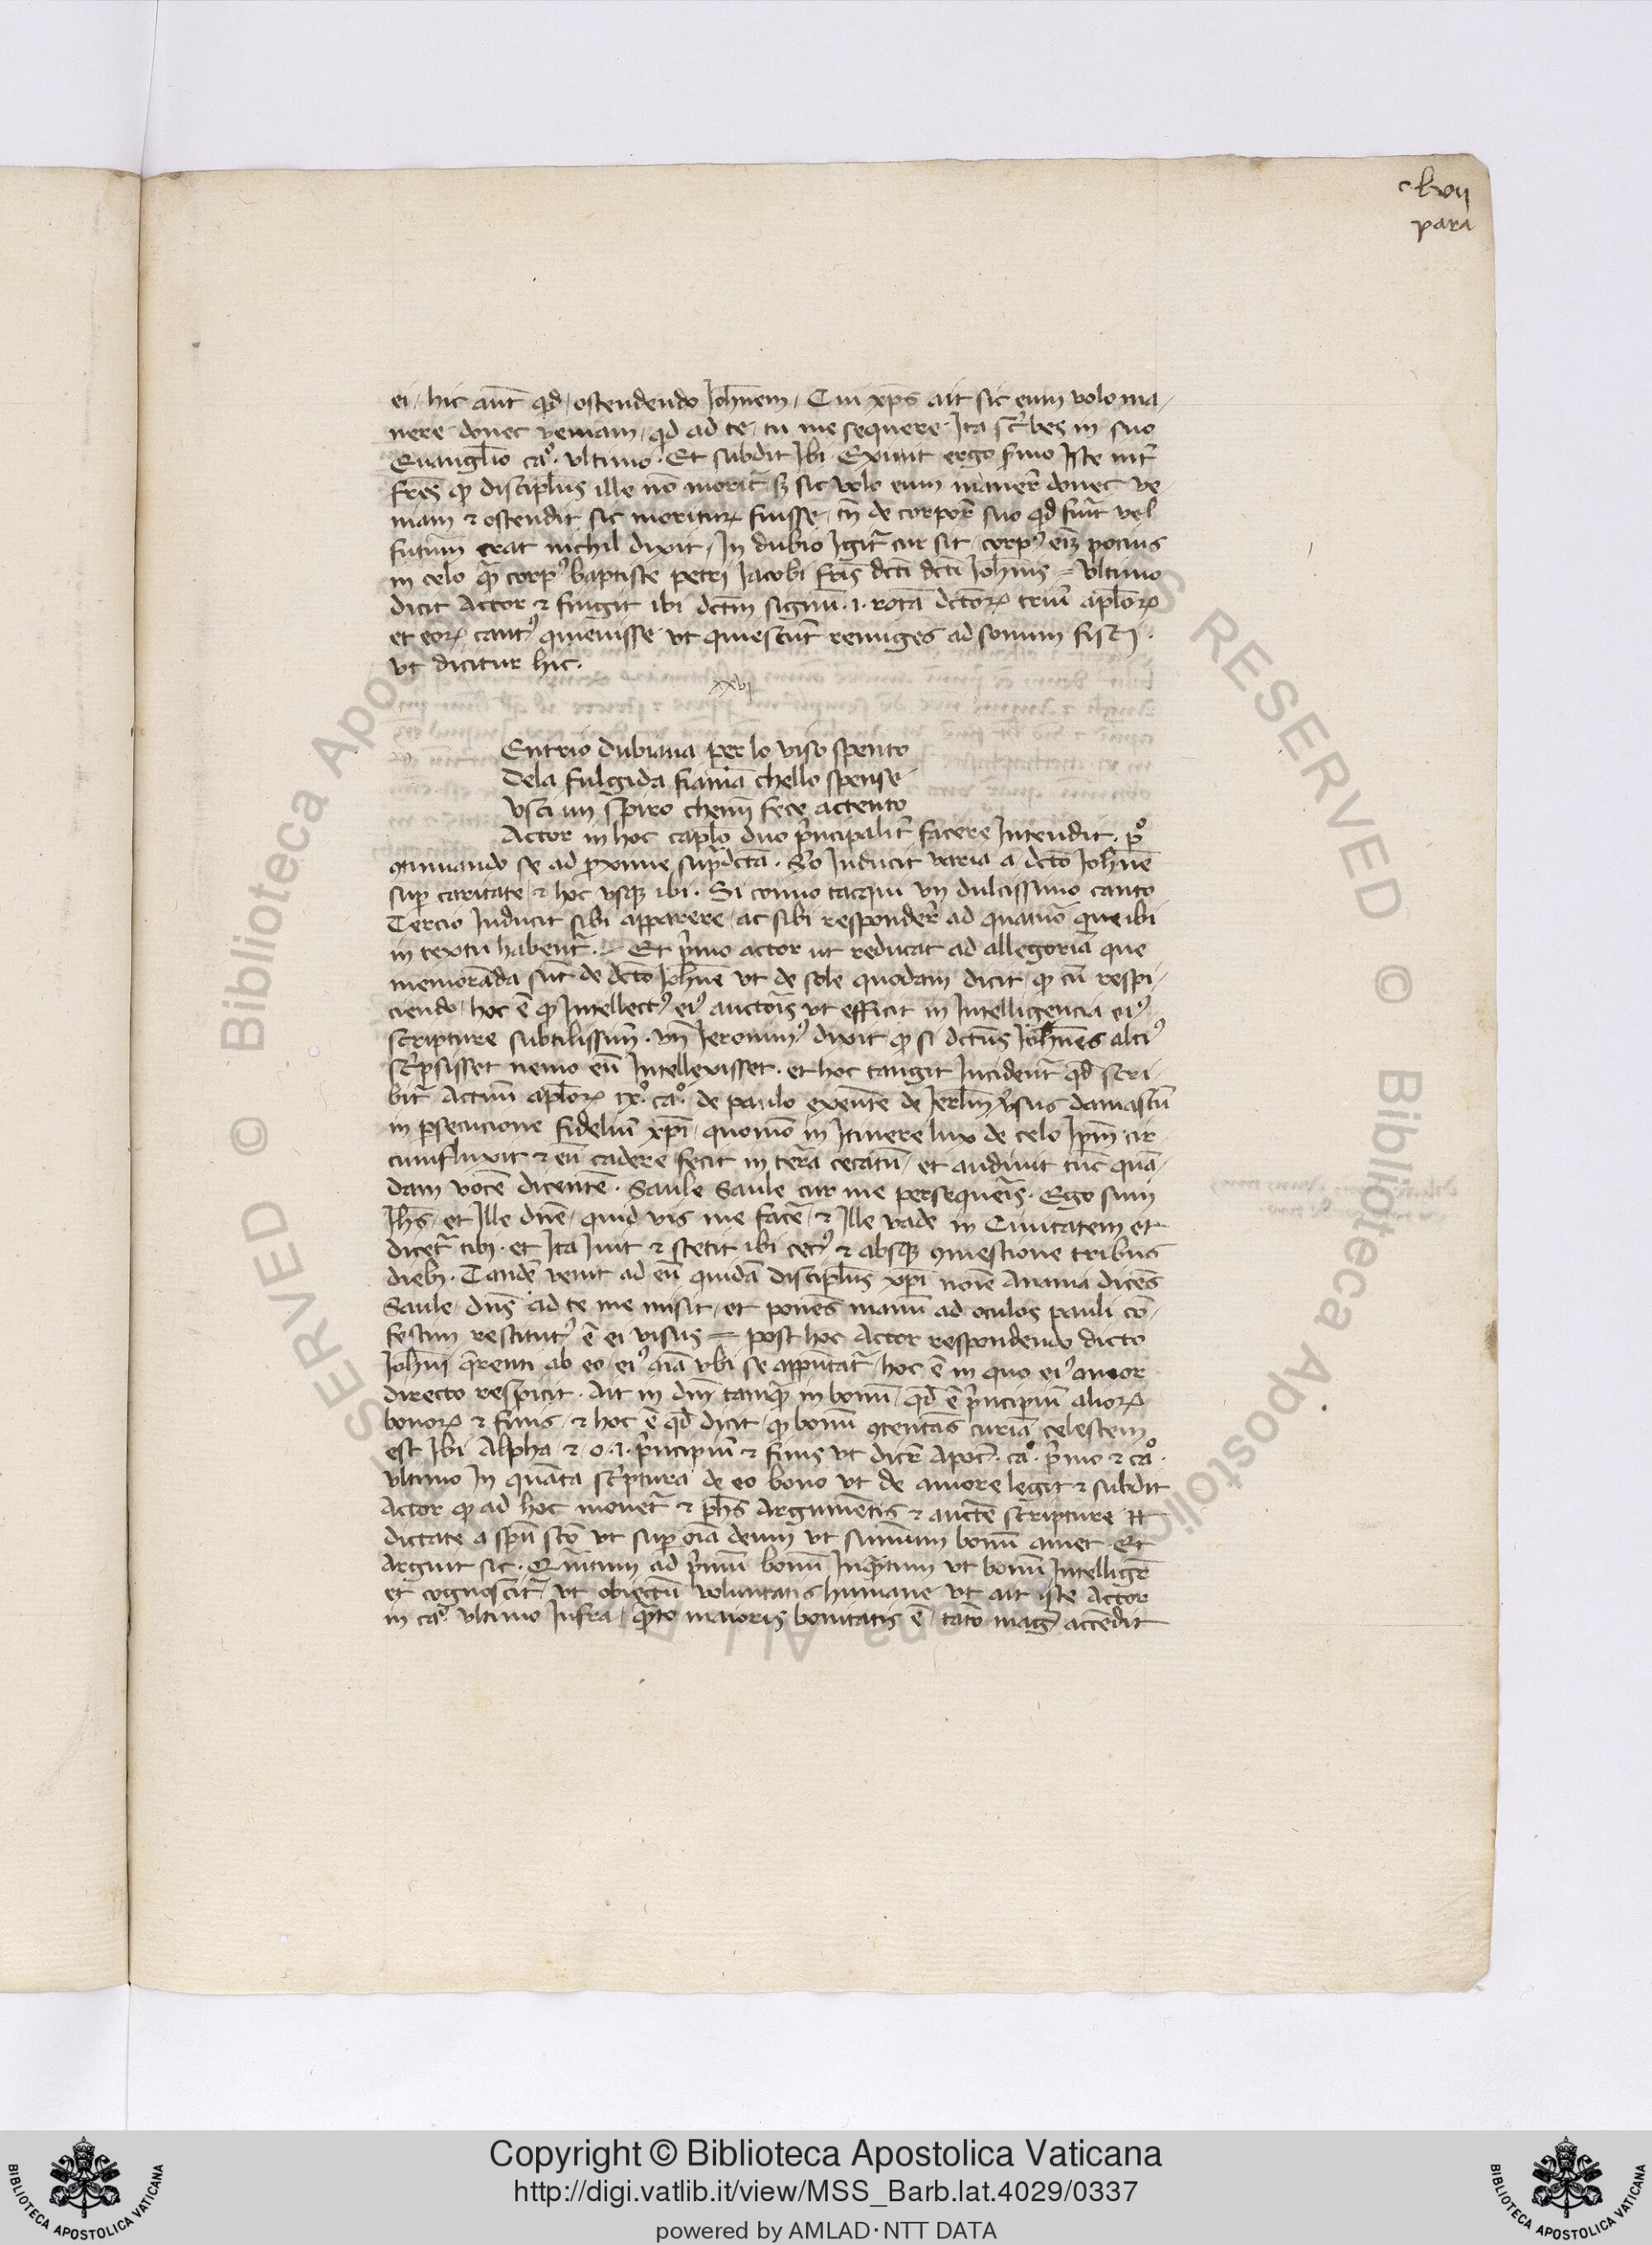 c lxvii
para
ei / hic aut̄ qd / ostendendo Joh̄nem / Cui xp̄s ait sic eum volo ma-
nere donec veniam / qd ad te / tu me sequere Ita sc̄bes in suo
Euangl̄io ca.° vltimo · Et subdit Ibi Exiuit ergo s̄mo Iste int̄
fr̄es qꝫ discipl̄us ille nō morit̄ sꝫ sic volo eum maner̄ donec ve
niam ⁊ ostendit sic moriturꝝ fuisse / tn̄ de corpor̄ suo qd fuit̄ vel
futum̄ erat nichil dixit / In dubio Igit̄ cur sit / corpꝰ eiꝫ pocius
in celo qꝫ corpꝰ baptiste petri Jacobi fr̄is dc̄ti dc̄ti Joh̄nis = Vltimo
dicit Actor ⁊ fingit ibi dc̄tm signū ·i· rotā dc̄toꝝ triū apl̄oꝝ
et eoꝝ cantꝰ quieuisse vt quiescūt remiges ad sonum fisti ·
vt dicitur hic ·
xxvj
Entrio dubiaua per lo viso spento
Dela fulgida fiamā chello spense
Vsci un spiro chemī fece actento
Actor in hoc capl̄o duo p̄ncipalit̄ facere Intendit · p°
ꝯtinuando se ad proxime sup̄dcta · S̄o Inducit varia a dc̄to Joh̄ne
sup̄ caritate / ⁊ hoc vsqꝫ ibi · Si como tacqui vn dulcissimo canto
Tercio Inducit sibi apparere / ac sibi responder̄ ad quatuor que ibi
in textu habent̄ · Et p̄mo actor ut reducat ad allegoriā que
memorāda sūt de dc̄to Joh̄ne vt de sole quodam dicit / qꝫ cū respi-
ciendo / hoc ē qꝫ Intellectꝰ eiꝰ auctoris vt efficit in Intelligencia eiꝰ
scripture subtilissim̄ · vn̄ Jeronimꝰ dixit qꝫ si dct̄us Joh̄nes alciꝰ
sc̄psisset nemo eū Intellexisset · et hoc tangit Incident̄ qd̄ scri-
bit̄ Actuū apl̄oꝝ ix.° ca.° de paulo exeunte de Jerl̄m v̄sus damascū
in p̄secucione fideliū xp̄i / quomō in Itinere lux de celo Ip̄m cir
cumfluxit ⁊ eū cadere fecit in terā cecatū / et audiuit tūc quā-
dam vocē dicentē · Saule Saule cur me persequeris · Ego sum
Jh̄s / et Ille dn̄e / quid vis me facē / ⁊ Ille vade in Ciuitatem et
dicet̄ tibi · et Ita Iuit ⁊ stetit ibi cecꝰ ⁊ absqꝫ ꝯmestione tribus
diebꝫ · Tandē venit ad eū quidā discipl̄us xp̄i noīe Anania dicēs
Saule / dn̄s ad te me misit / et ponēs manū ad oculos pauli cō-
festim restitutꝰ ē ei visus = post hoc Actor respondendo dicto
Joh̄ni q̄renti ab eo / eiꝰ aīa vbi se appūtat̄ / hoc ē in quo eiꝰ amor
directo respicit · Ait in dm̄ tanqꝫ in bonū / qd̄ ē p̄ncipiū alioꝝ
bonoꝝ ⁊ finis / ⁊ hoc ē qd̄ dicit / qꝫ bonū ꝯtentās curiā celestem
est Ibi Alpha / ⁊ · o · i · p̄ncipiū ⁊ finis vt dicr̄ Apoc̄ · ca.° p̄mo ⁊ ca.°
vltimo In quāta sc̄ptura de eo bono vt de amore legit ⁊ subdit
Actor qꝫ ad hoc mouet̄ ⁊ ph̄s Argumētis ⁊ auctē scripture
dictate a sp̄u sc̄o vt sup̄ oīa deum vt summum bonū amet · Et
Arguit sic · Quātum ad p̄mū bonū Inqꝫtum vt bonū Intelligr̄
et cognoscit̄ / vt obiectū voluntatis humane vt ait iste Actor
in ca.° vltimo Infra / qꝫto maioris bonitatis ē / tāto magꝭ accēdit
Copyright © Biblioteca Apostolica Vaticana
http://digi.vatlib.it/view/MSS_Barb.lat.4029/0337
powered by AMLAD·NTT DATA